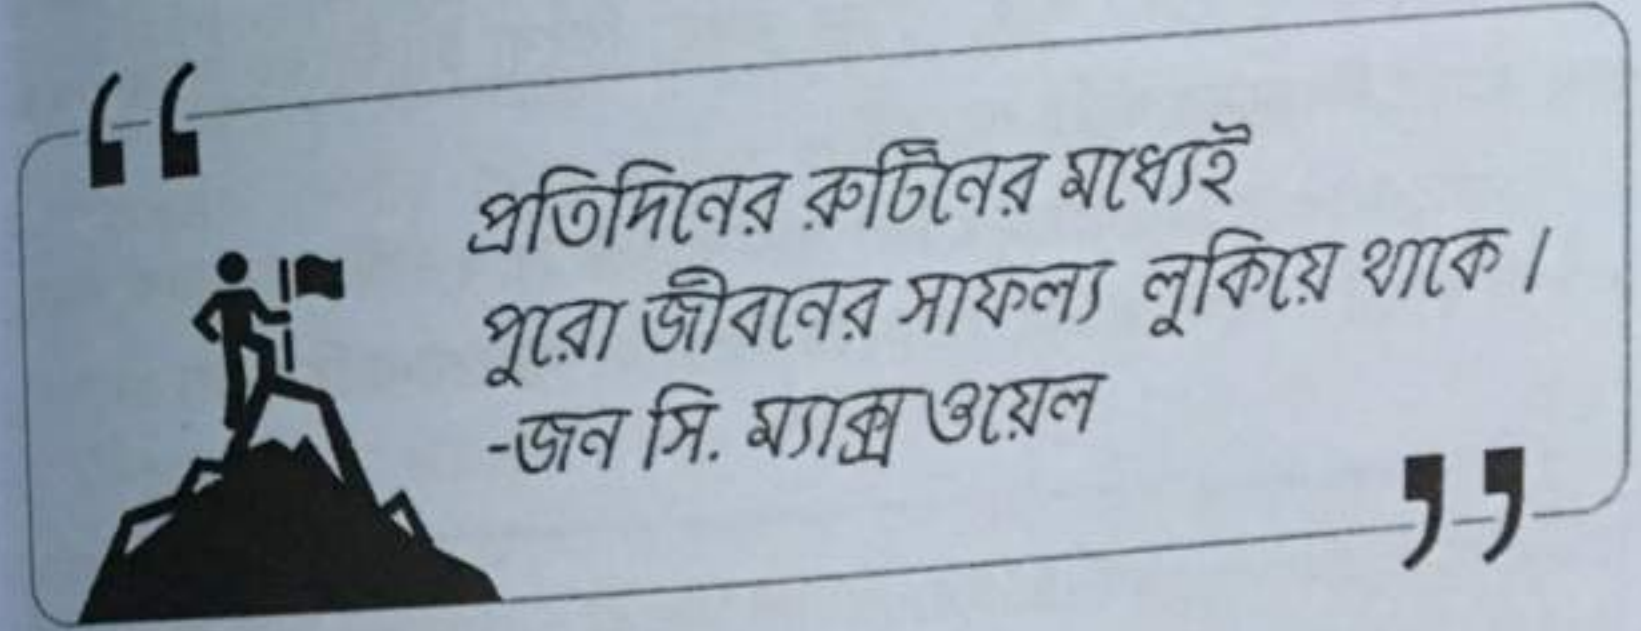 “
প্রতিদিনের রুটিনের মধ্যেই
পুরো জীবনের সাফল্য লুকিয়ে থাকে।
-জন সি. ম্যাক্স ওয়েল
”